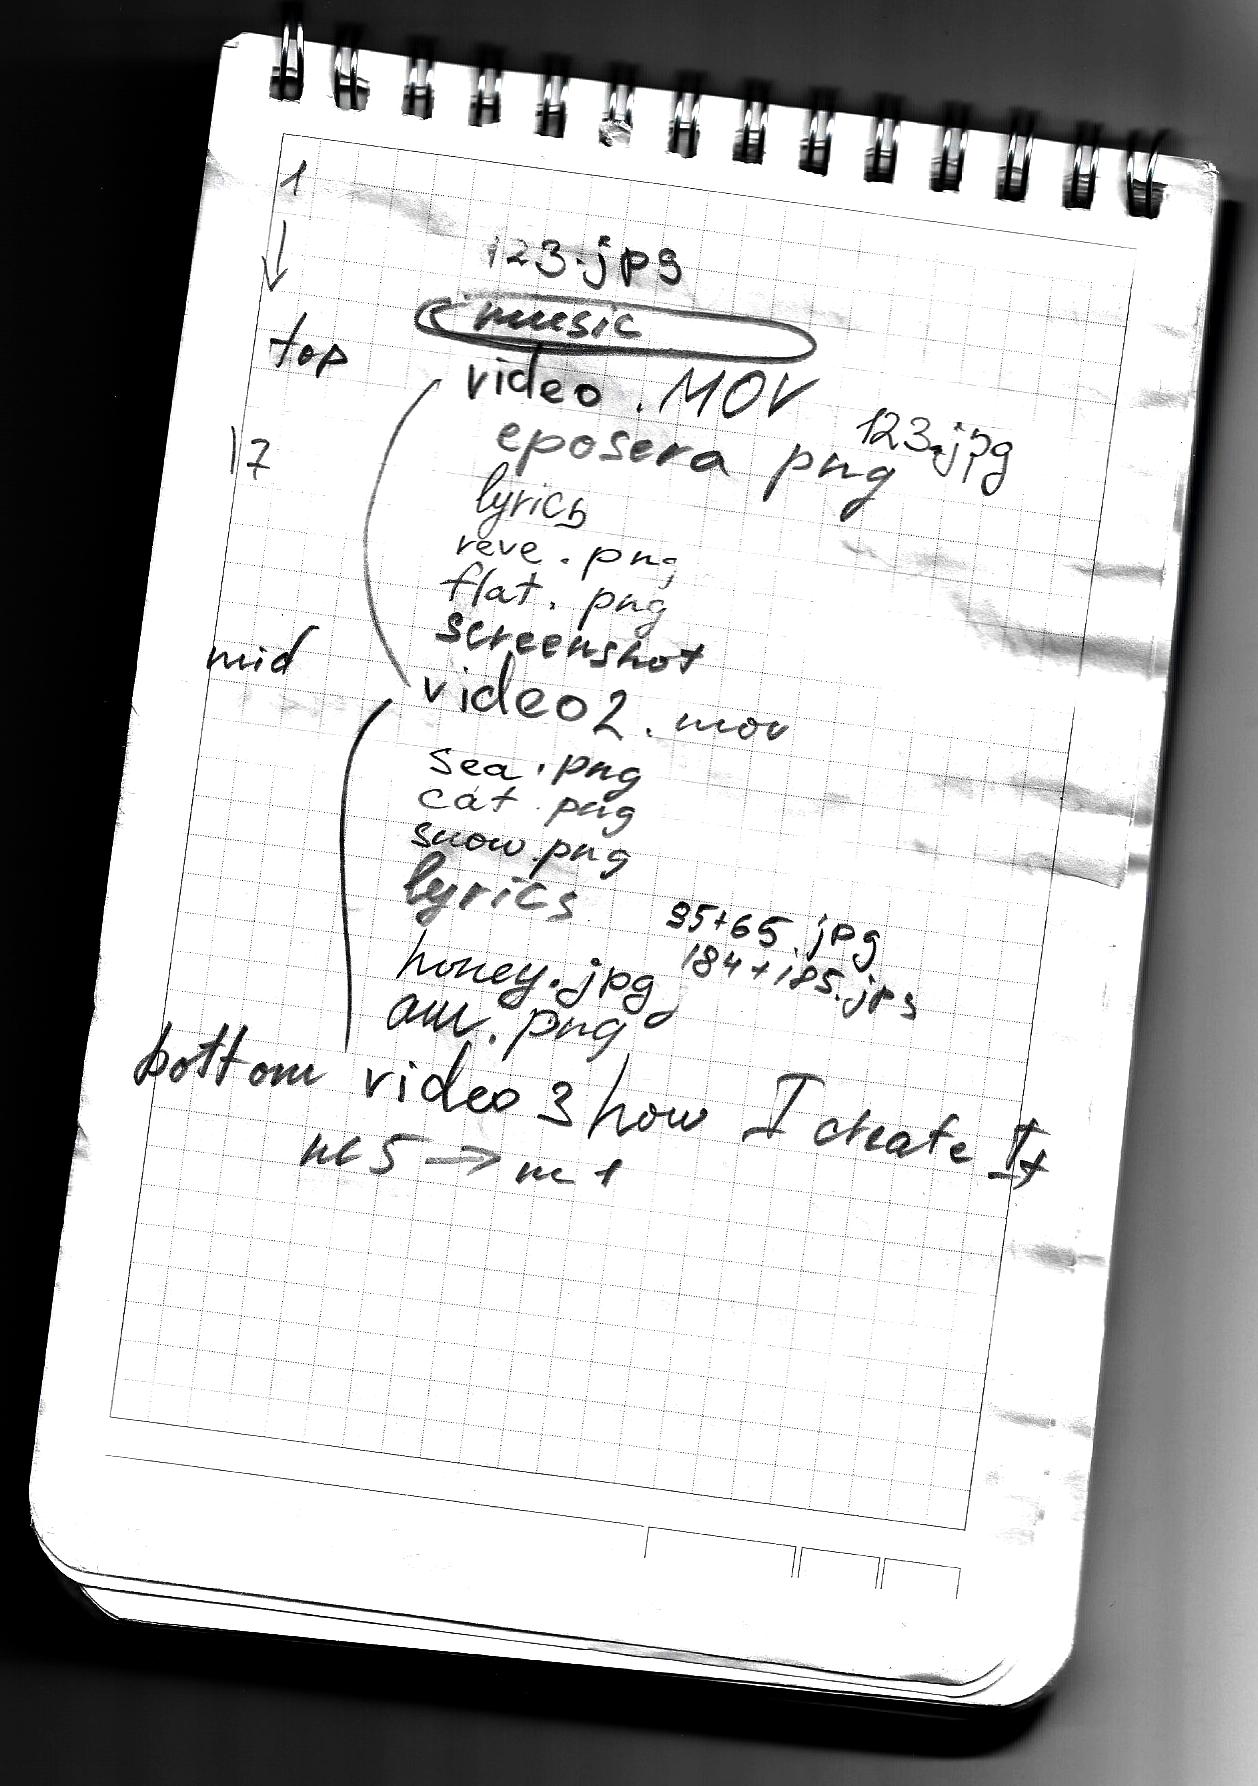 1
123.jpg
music
top
video . MOV
123.jpg
eposera png
17
lyrics
reve . png
flat . png
screenshot
mid
video2 . mov
sea . png
cat . png
snow.png
lyrics
95+65.jpg
184+185.jpg
honey.jpg
.png
bottom video 3 how I create It
5 → 1